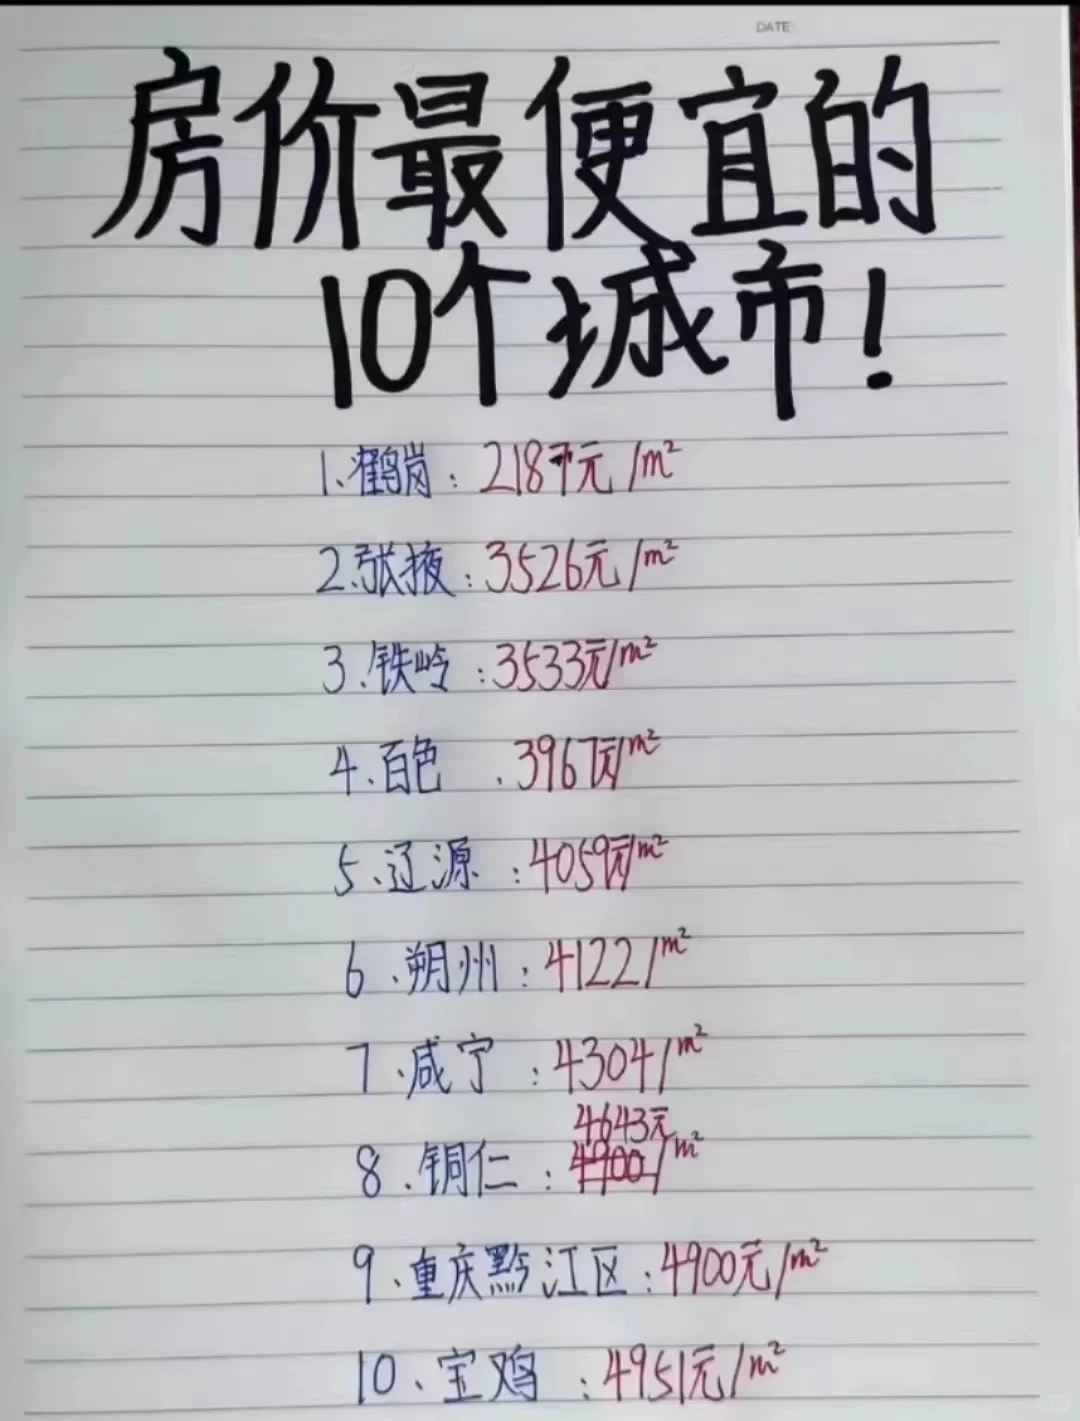 DATE:
房价最便宜的
10个城市!
1、鹤岗：2187元/m²
2、张掖：3526元/m²
3、铁岭：3533元/m²
4、百色：3967元/m²
5、辽源：4059元/m²
6、朔州：4122/m²
7、咸宁：4304/m²
4643元
8、铜仁：4900/m²
9、重庆黔江区：4900元/m²
10、宝鸡：4951元/m²